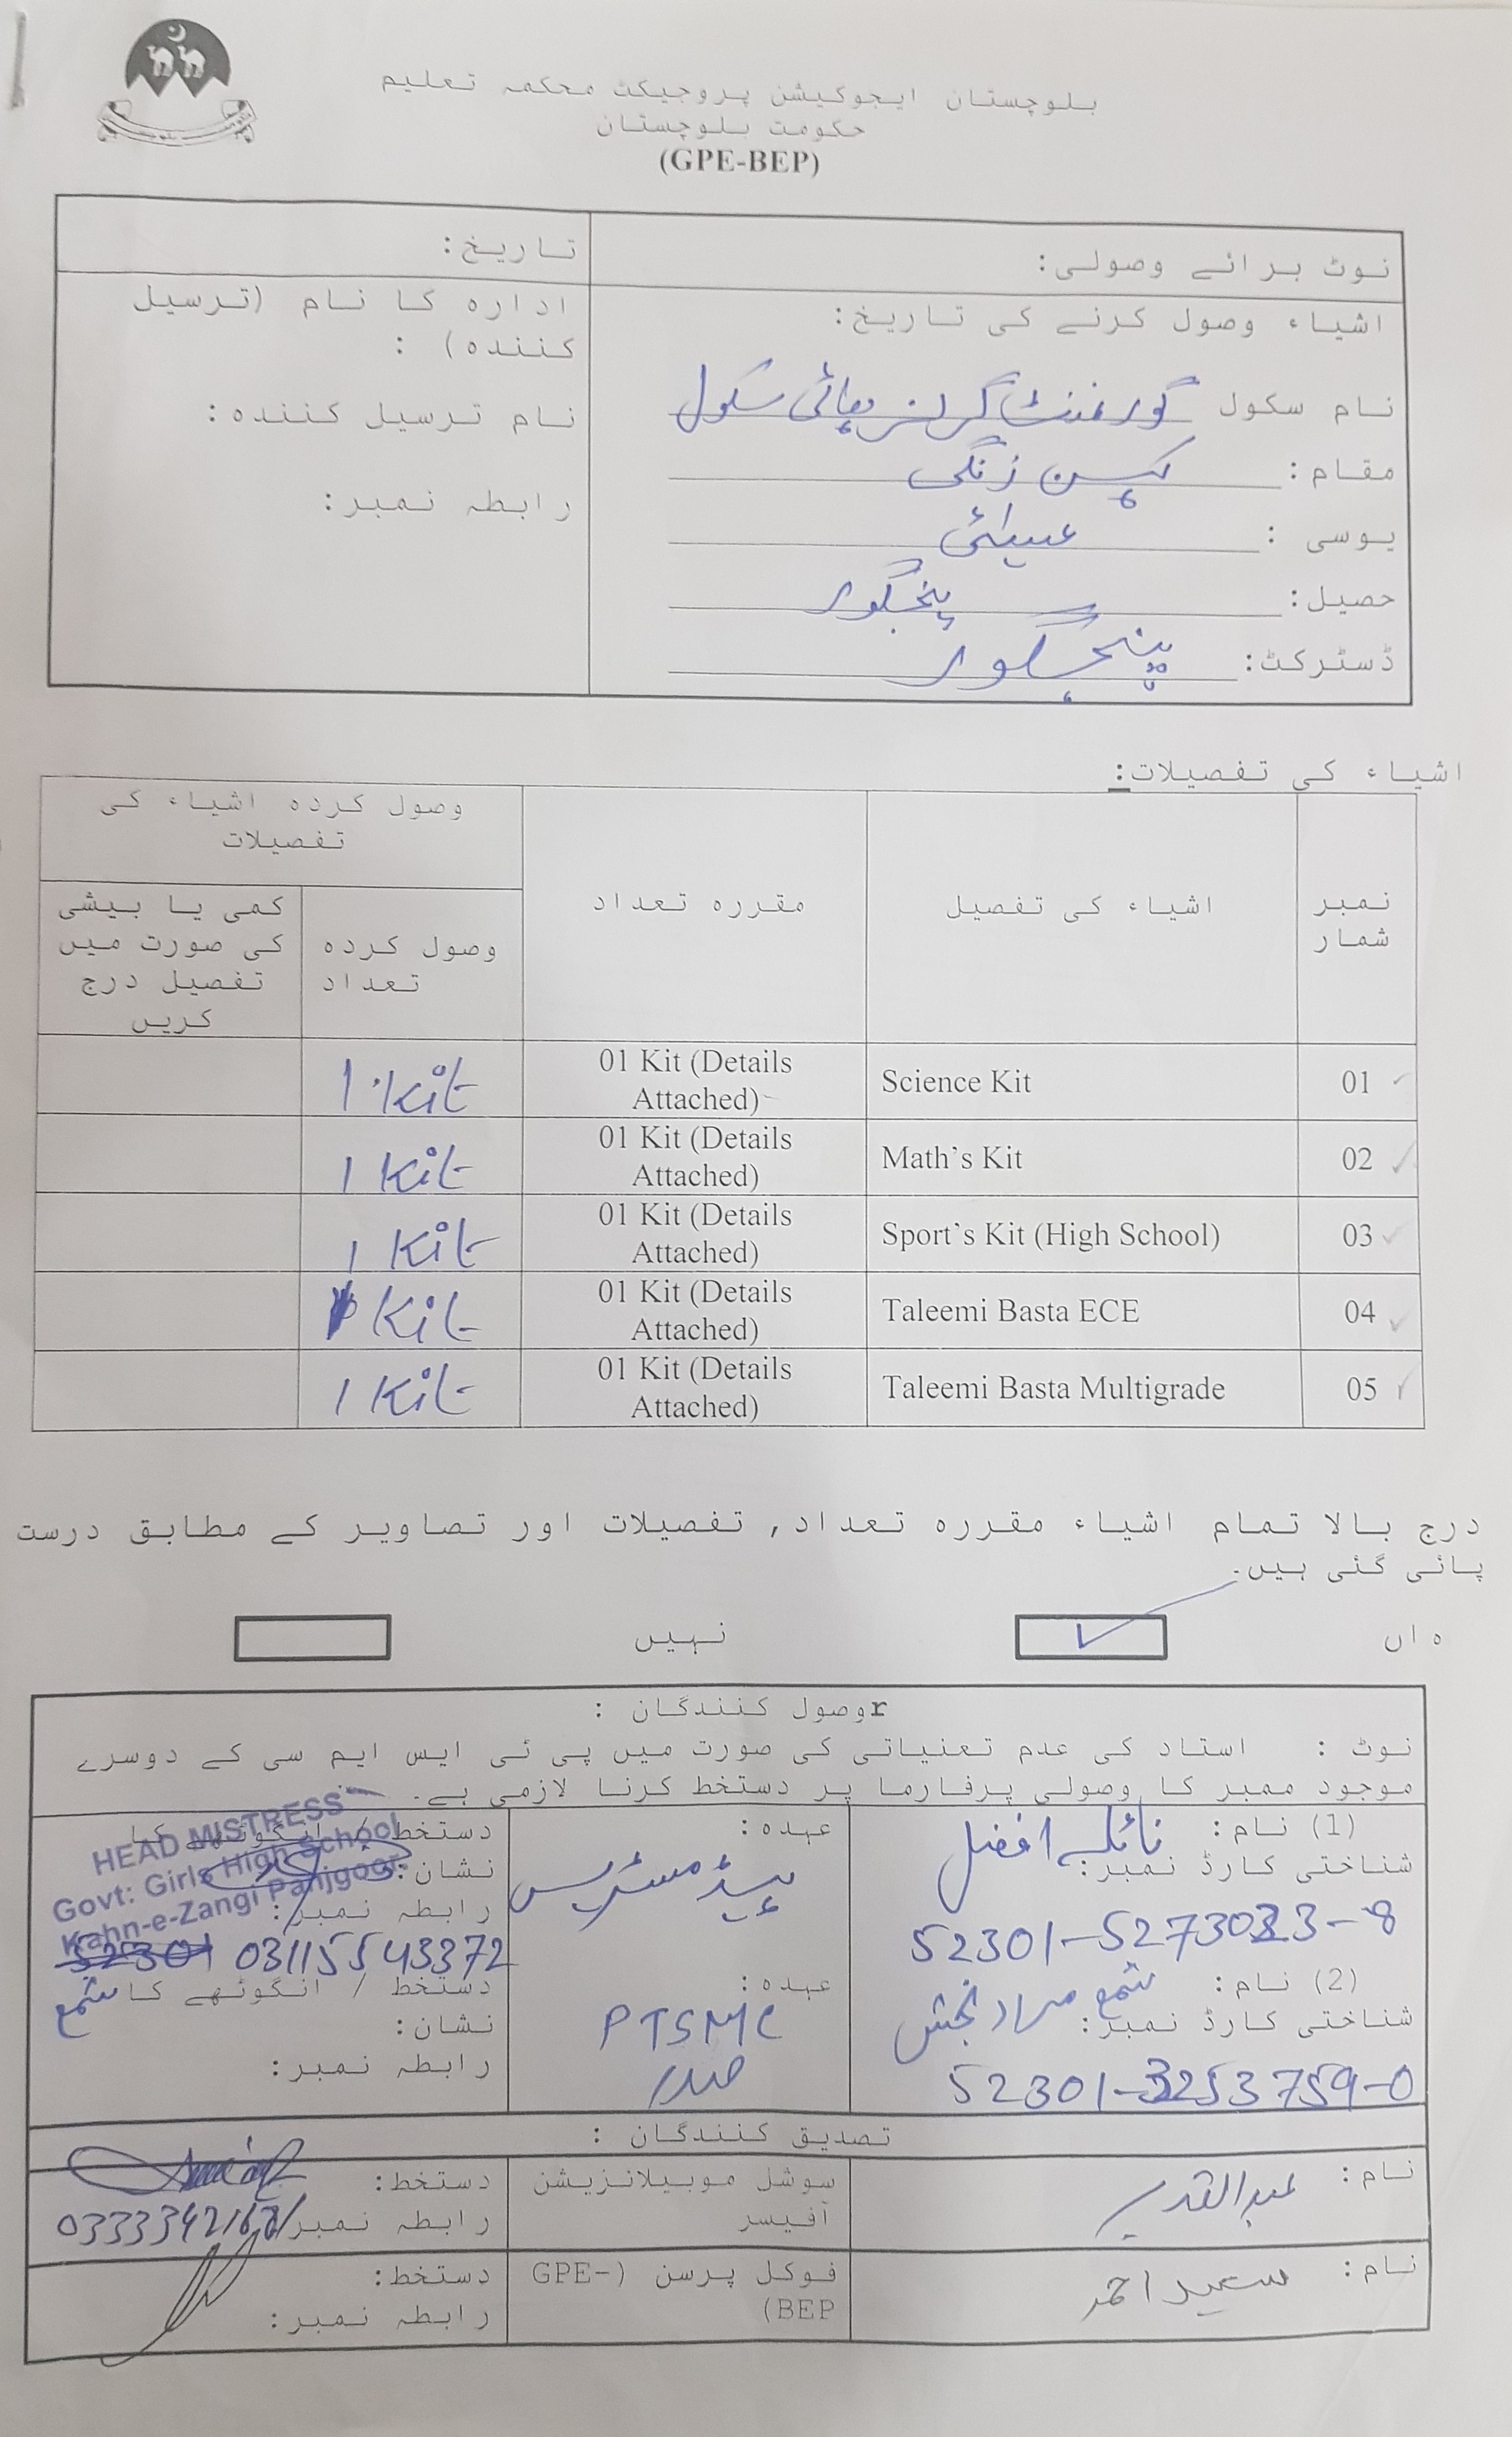 بلوچستان ایجوکیشن پروجیکٹ محکمہ تعلیم
حکومت بلوچستان
(GPE-BEP)
نوٹ برائے وصولی:
تاریخ:
اشیاء وصول کرنے کی تاریخ:
نام سکول گورنمنٹ گرلز ہائی سکول
مقام: کہن زنگی
یوسی :
حصیل: پنجگور
ڈسٹرکٹ: پنجگور
ادارہ کا نام (ترسیل
کنندہ) :
نام ترسیل کنندہ:
رابطہ نمبر:
اشیاء کی تفصیلات:
نمبر شمار
اشیاء کی تفصیل
مقررہ تعداد
وصول کردہ اشیاء کی تفصیلات
وصول کردہ تعداد
کمی یا بیشی کی صورت میں تفصیل درج کریں
01 Science Kit 01 Kit (Details Attached) 1 Kit
02 Math's Kit 01 Kit (Details Attached) 1 Kit
03 Sport's Kit (High School) 01 Kit (Details Attached) 1 Kit
04 Taleemi Basta ECE 01 Kit (Details Attached) Kit
05 Taleemi Basta Multigrade 01 Kit (Details Attached) 1 Kit
درج بالا تمام اشیاء مقررہ تعداد, تفصیلات اور تصاویر کے مطابق درست
پائی گئی ہیں.
ہاں
نہیں
rوصول کنندگان :
نوٹ : استاد کی عدم تعنیاتی کی صورت میں پی ٹی ایس ایم سی کے دوسرے
موجود ممبر کا وصولی پرفارما پر دستخط کرنا لازمی ہے.
(1) نام: نائلہ افضل
شناختی کارڈ نمبر:
عہدہ:
ہیڈ مسٹریس
دستخط / انگوٹھے کا
نشان:
رابطہ نمبر:
03115543372
HEAD MISTRESS
Govt: Girls High School
Kahn-e-Zangi Panjgoor
(2) نام: شمع مراد بخش
شناختی کارڈ نمبر:
52301-3253759-0
عہدہ:
PTSMC
صدر
دستخط / انگوٹھے کا شمع
نشان:
رابطہ نمبر:
تصدیق کنندگان :
نام: عبدالقدیر
سوشل موبیلائزیشن
آفیسر
دستخط:
رابطہ نمبر
نام: سعید احمد
فوکل پرسن (GPE-
BEP)
دستخط:
رابطہ نمبر: